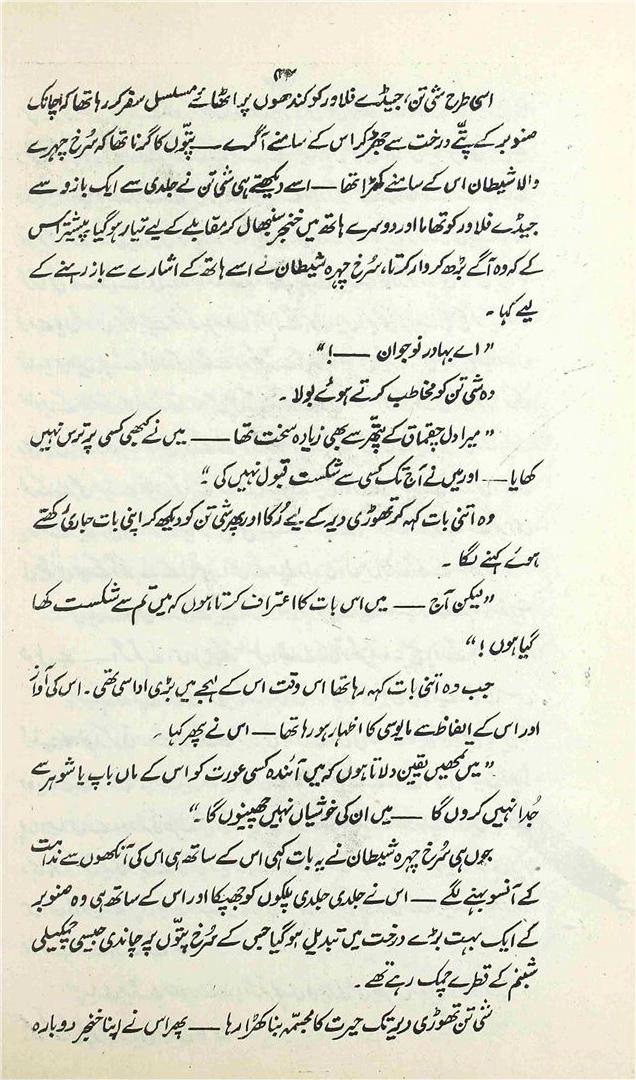 اسی طرح شی تن، جیڈے فلاور کو کندھوں پر اٹھائے مسلسل سفر کر رہا تھا کہ اچانک
صنوبر کے پتّے درخت سے جھڑ کر اس کے سامنے آ گرے ـــ پتّوں کا گرنا تھا کہ سُرخ چہرے
والا شیطان اس کے سامنے کھڑا تھا ـــ اسے دیکھتے ہی شی تن نے جلدی سے ایک بازو سے
جیڈے فلاور کو تھاما اور دوسرے ہاتھ میں خنجر سنبھال کر مقابلے کے لیے تیار ہو گیا پیشتر اس
کے کہ وہ آگے بڑھ کر وار کرتا، سُرخ چہرہ شیطان نے اسے ہاتھ کے اشارے سے باز رہنے کے
لیے کہا ۔
”اے بہادر نوجوان ـــ !“
وہ شی تن کو مخاطب کرتے ہوئے بولا ۔
”میرا دل چقماق کے پتھّر سے بھی زیادہ سخت تھا ـــ میں نے کبھی کسی پر ترس نہیں
کھایا ـــ اور میں نے آج تک کسی سے شکست قبول نہیں کی ۔“
وہ اتنی بات کہہ کر تھوڑی دیر کے لیے رُکا اور پھر شی تن کو دیکھ کر اپنی بات جاری رکھتے
ہوئے کہنے لگا ۔
”لیکن آج ـــ میں اس بات کا اعتراف کرتا ہوں کہ میں تم سے شکست کھا
گیا ہوں !“
جب وہ اتنی بات کہہ رہا تھا اس وقت اس کے لہجے میں بڑی اداسی تھی ۔ اس کی آواز
اور اس کے الفاظ سے مایوسی کا اظہار ہو رہا تھا ـــ اس نے پھر کہا ۔
”میں تمھیں یقین دلاتا ہوں کہ میں آئندہ کسی عورت کو اس کے ماں باپ یا شوہر سے
جُدا نہیں کروں گا ـــ میں ان کی خوشیاں نہیں چھینوں گا ۔“
جوں ہی سُرخ چہرہ شیطان نے یہ بات کہی اس کے ساتھ ہی اس کی آنکھوں سے ندامت
کے آنسو بہنے لگے ـــ اس نے جلدی جلدی پلکوں کو جھپکا اور اس کے ساتھ ہی وہ صنوبر
کے ایک بہت بڑے درخت میں تبدیل ہو گیا جس کے سُرخ پتّوں پر چاندی جیسی چمکیلی
شبنم کے قطرے چمک رہے تھے ۔
شی تن تھوڑی دیر تک حیرت کا مجسّمہ بنا کھڑا رہا ـــ پھر اس نے اپنا خنجر دوبارہ